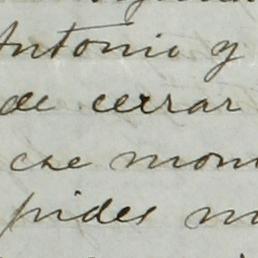 Antonio y
de cerrar
ese mom
pides m